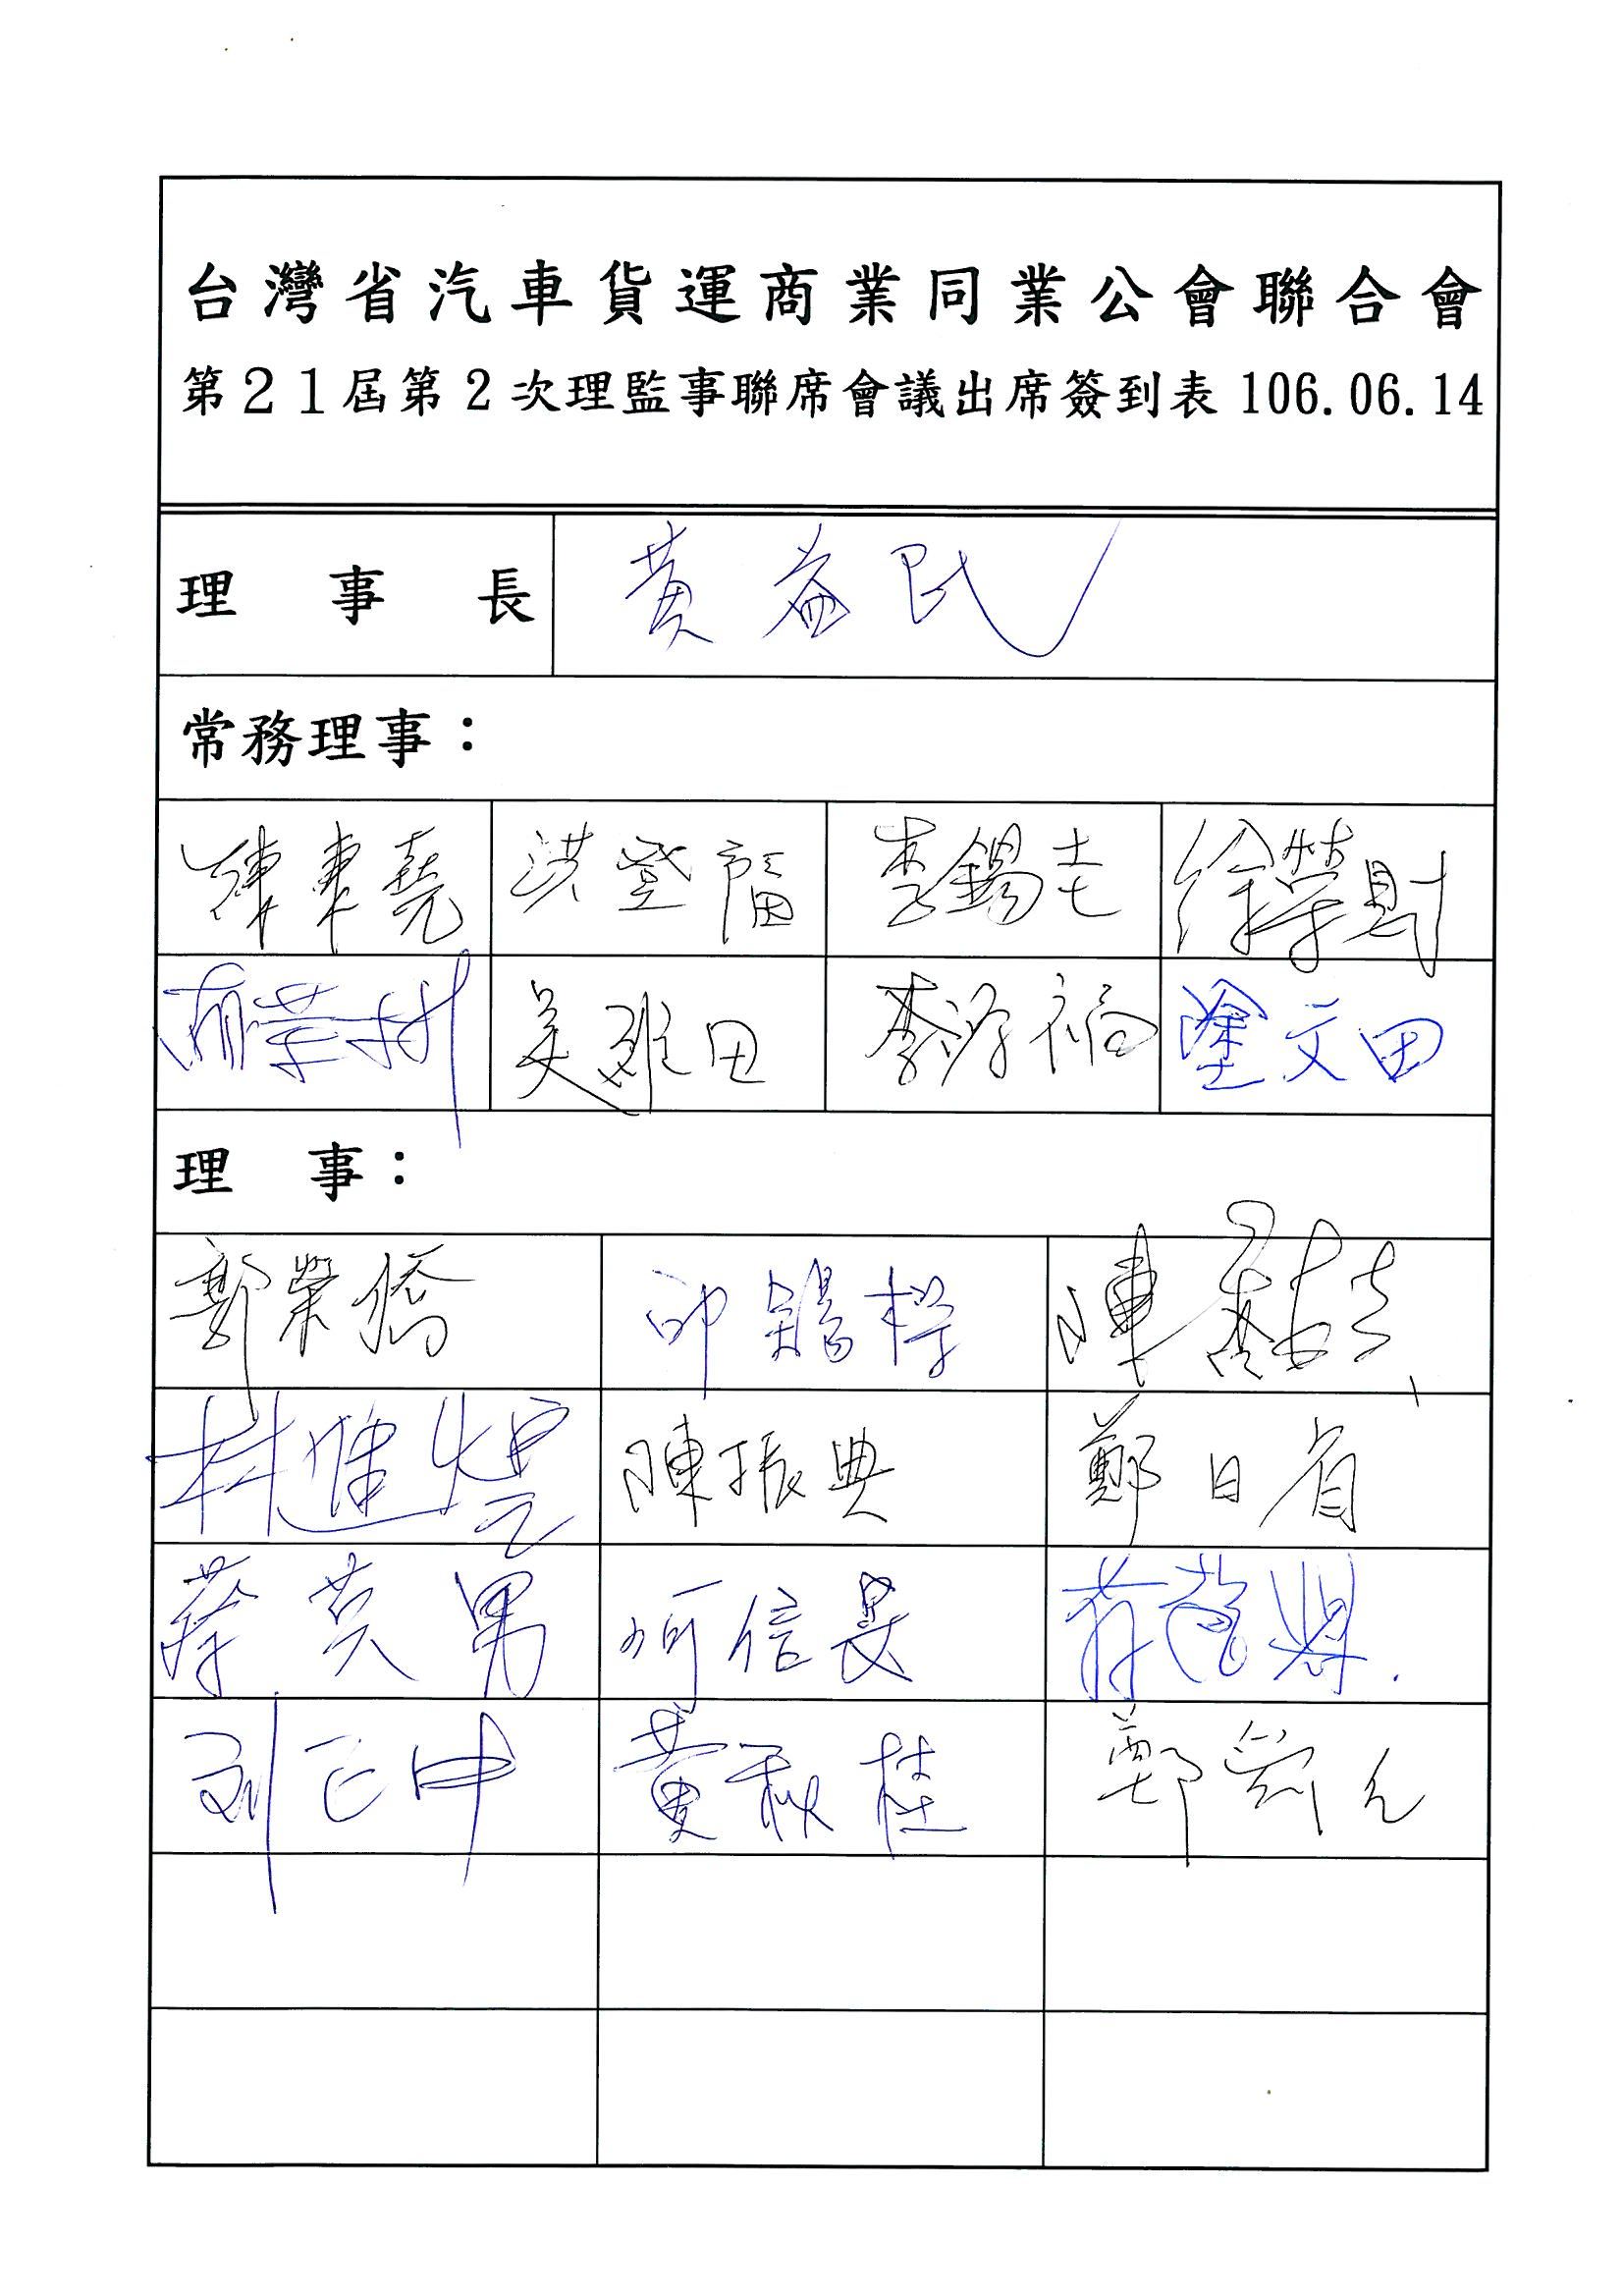 台灣省汽車貨運商業同業公會聯合會
第21屆第2次理監事聯席會議出席簽到表 106.06.14
理事長 黃益民
常務理事：
陳東堯 洪登福 李錫圭 徐榮財
吳雅田 李源福 塗文田
理事：
郭榮僑 邱錫樑 陳
林進焜 陳振典 鄭日省
蔡英男 何信長 蔣
劉正中 黃秋桂 鄭